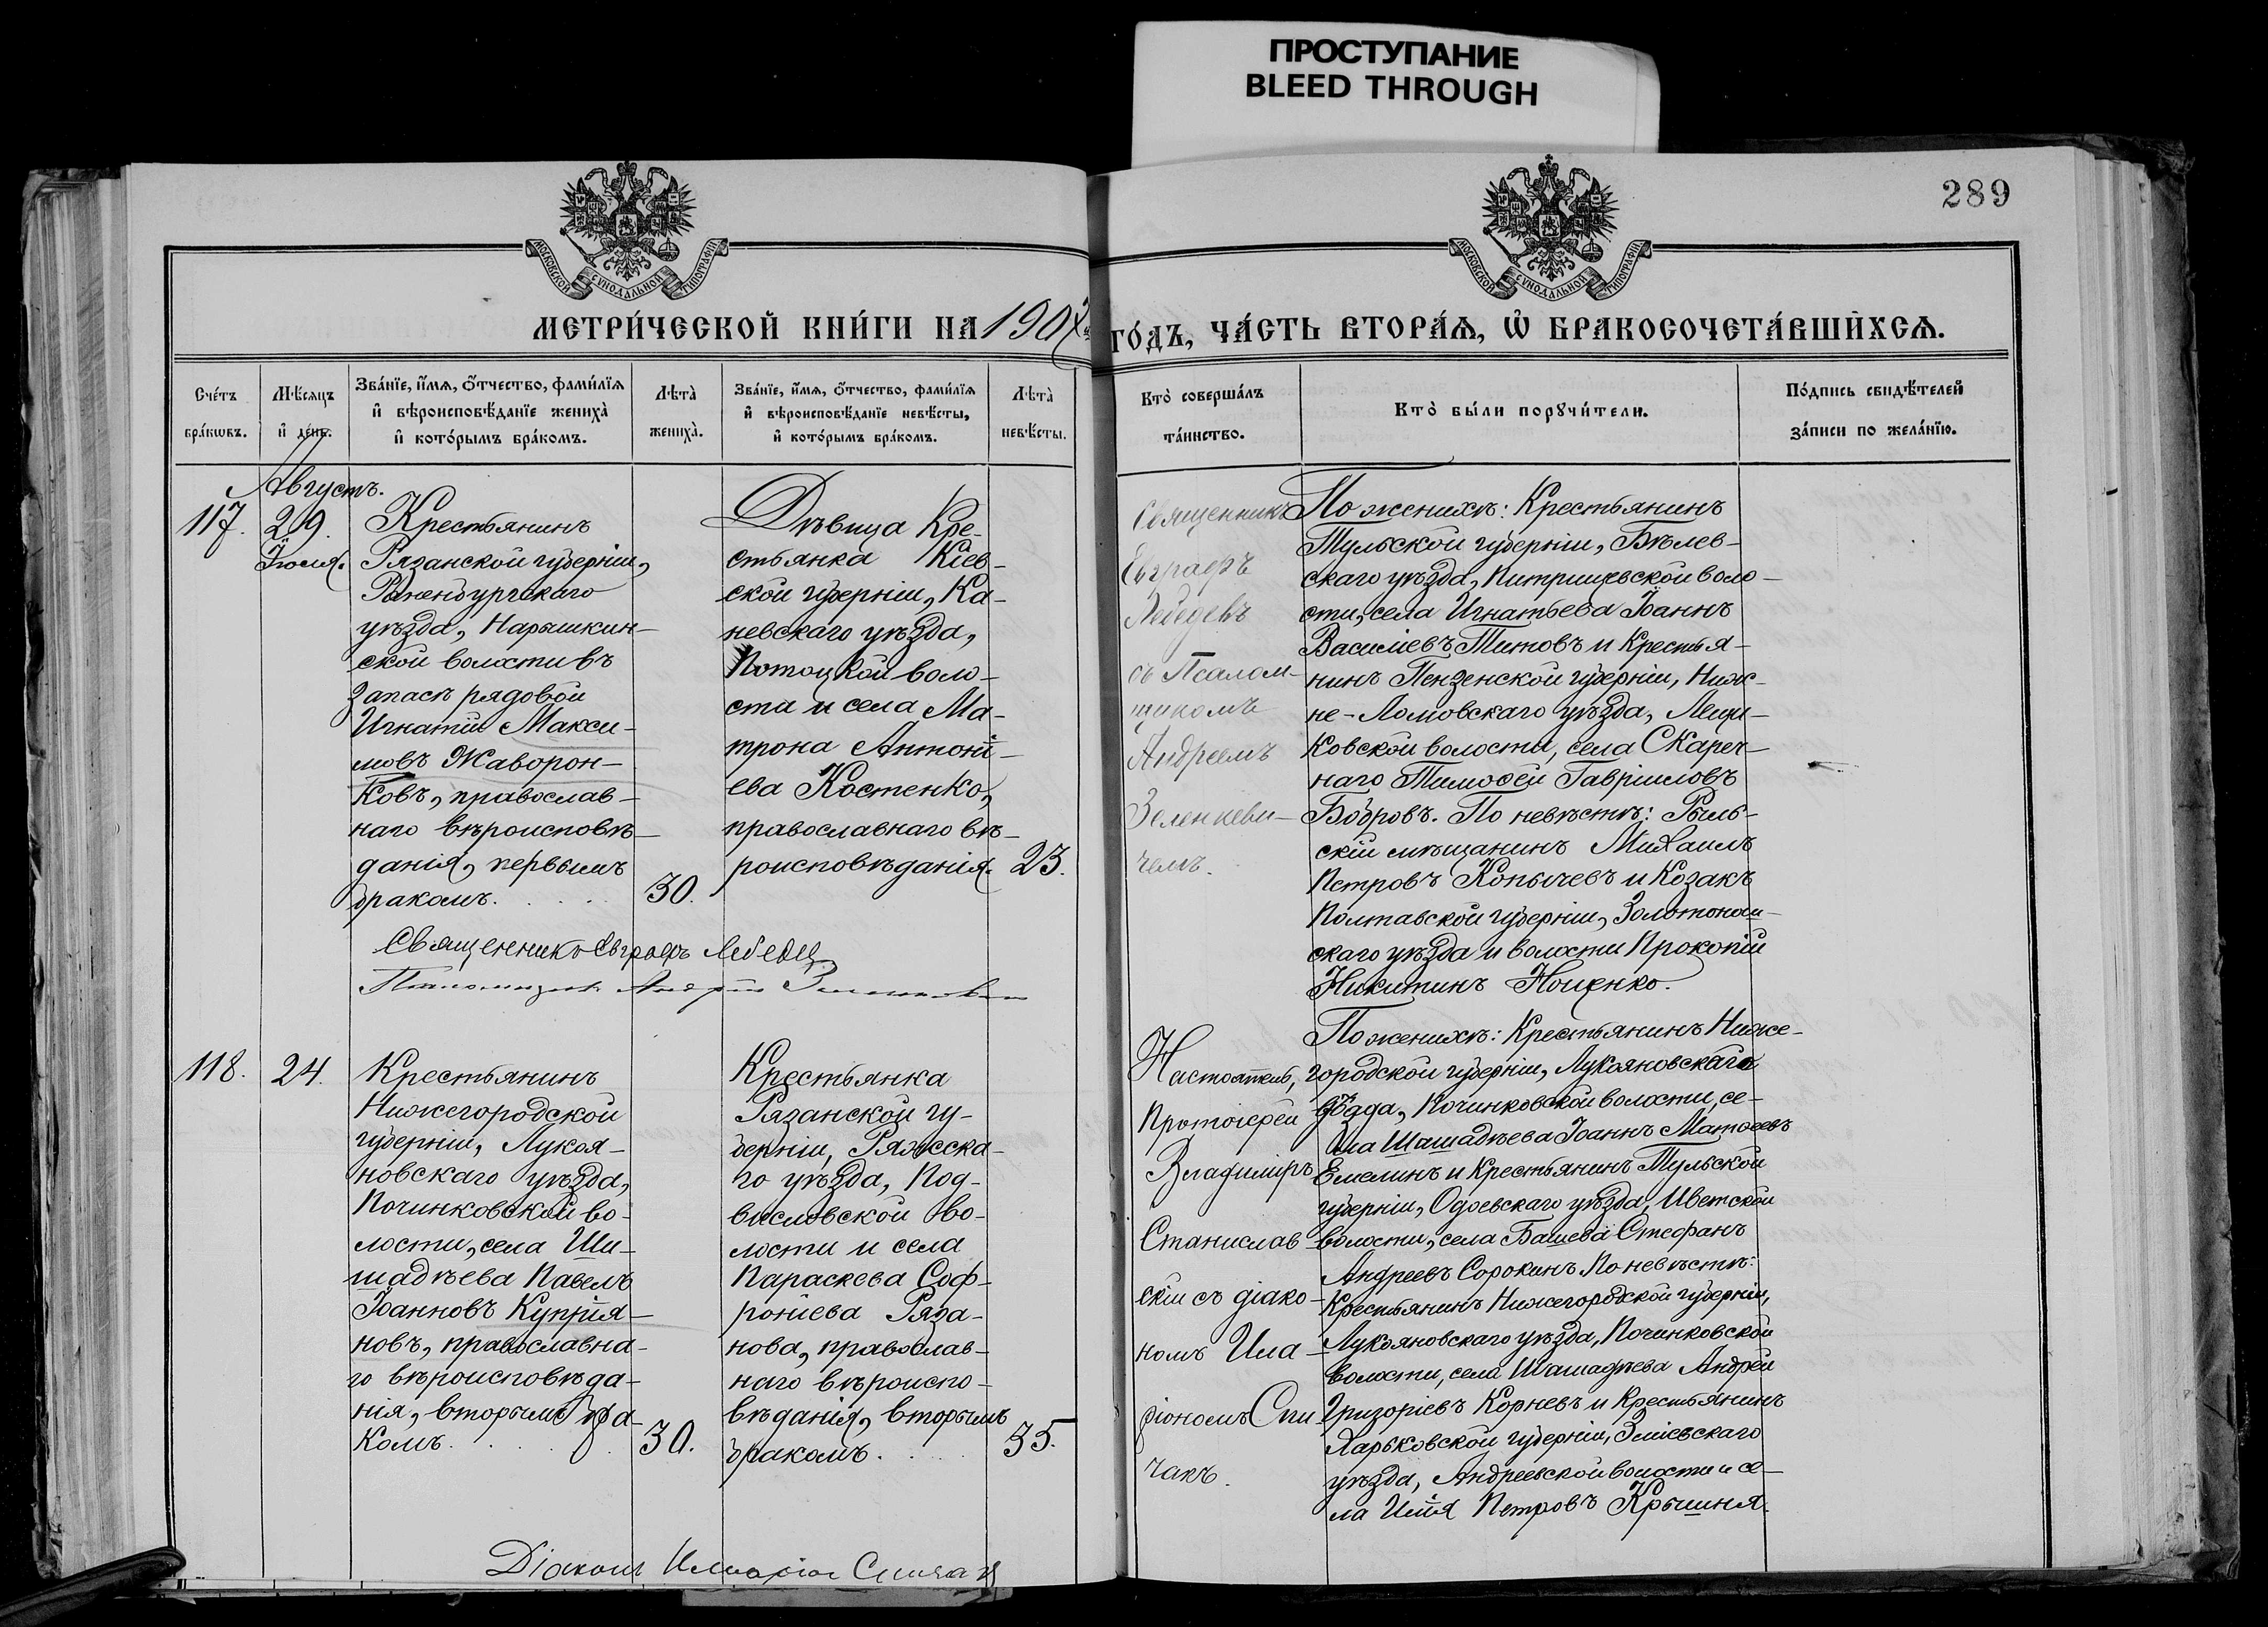 ПРОСТУПАНИЕ
BLEED THROUGH
289
МОСКОВСКОЙ СѴНОДАЛЬНОЙ ТИПОГРАФІИ
МОСКОВСКОЙ СѴНОДАЛЬНОЙ ТИПОГРАФІИ
МЕТРИ́ЧЕСКОЙ КНИ́ГИ НА 1907 ГО́ДЪ, ЧА́СТЬ ВТОРА́Ѧ, Ѽ БРАКОСОЧЕТА́ВШИХСѦ.
Сче́тъ
бра́кѡвъ.
Мѣ́сяцъ
и҆ де́нь.
Зва́нїе, и҆́мѧ, ѻ҆́тчество, фами́лїѧ
и҆ вѣроисповѣ́данїе жениха̀
и҆ кото́рымъ бра́комъ.
Лѣ́та
жениха̀.
Зва́нїе, и҆́мѧ, ѻ҆́тчество, фами́лїѧ
и҆ вѣроисповѣ́данїе невѣ́сты,
и҆ кото́рымъ бра́комъ.
Лѣ́та
невѣ́сты.
Кто̀ соверша́лъ
та́инство.
Кто̀ бы́ли порꙋчи́тели.
По́дпись свидѣ́телей
за́писи по жела́нїю.
Августъ.
117.
29.
Іюля.
Крестьянинъ
Рязанской губерніи,
Раненбургскаго
уѣзда, Нарышкин-
ской волости въ
запасѣ рядовой
Игнатій Макси-
мовъ Жаворон-
ковъ, православ-
наго вѣроисповѣ-
данія, первымъ
бракомъ.
30.
Дѣвица Кре-
стьянка Кіев-
ской губерніи, Ка-
невскаго уѣзда,
Потоцкой воло-
сти и села Ма-
трона Антоні-
ева Костенко,
православнаго вѣ-
роисповѣданія.
23.
Священникъ
Евграфъ
Лебедевъ
съ Псалом-
щикомъ
Андреемъ
Зеленкеви-
чемъ.
По женихѣ: Крестьянинъ
Тульской губерніи, Бѣлев-
скаго уѣзда, Митрищевской воло-
сти, села Игнатьева Іоаннъ
Василіевъ Титовъ и Крестья-
нинъ Пензенской губерніи, Ниж-
не-Ломовскаго уѣзда, Лещи-
ковской волости, села Скареч-
наго Тимоѳей Гавріиловъ
Бобровъ. По невѣстѣ: Рыль-
скій мѣщанинъ Михаилъ
Петровъ Копычевъ и Козакъ
Полтавской губерніи, Золотонош-
скаго уѣзда и волости Прокопій
Никитинъ Ноценко.
Священникъ Евграфъ Лебедевъ
Псаломщикъ Андрей Зеленкевич
118.
24.
Крестьянинъ
Нижегородской
губерніи, Лукоя-
новскаго уѣзда,
Починковской во-
лости, села Ши-
шадѣева Павелъ
Іоанновъ Купрія-
новъ, православна-
го вѣроисповѣда-
нія, вторымъ бра-
комъ.
30.
Крестьянка
Рязанской гу-
берніи, Ряжсска-
го уѣзда, Под-
висловской во-
лости и села
Параскева Соф-
роніева Ряза-
нова, православ-
наго вѣроиспо-
вѣданія, вторымъ
бракомъ.
35.
Настоятель,
Протоіерей
Владиміръ
Станислав-
скій съ діако-
номъ Ила-
ріономъ Спи-
чакъ.
По женихѣ: Крестьянинъ Ниже-
городской губерніи, Лукояновскаго
уѣзда, Починковской волости, се-
ла Шашадѣева Іоаннъ Матѳеевъ
Емелинъ и Крестьянинъ Тульской
губерніи, Одоевскаго уѣзда,
волости, села Башева Стефанъ
Андреевъ Сорокинъ. По невѣстѣ:
Крестьянинъ Нижегородской губерніи,
Лукояновскаго уѣзда, Починковской
волости, села Шашадѣева Андрей
Григоріевъ Корневъ и Крестьянинъ
Харьковской губерніи, Зміевскаго
уѣзда, Андреевской волости и се-
ла Илія Петровъ Крышня.
Діаконъ Иларіон Спичакъ